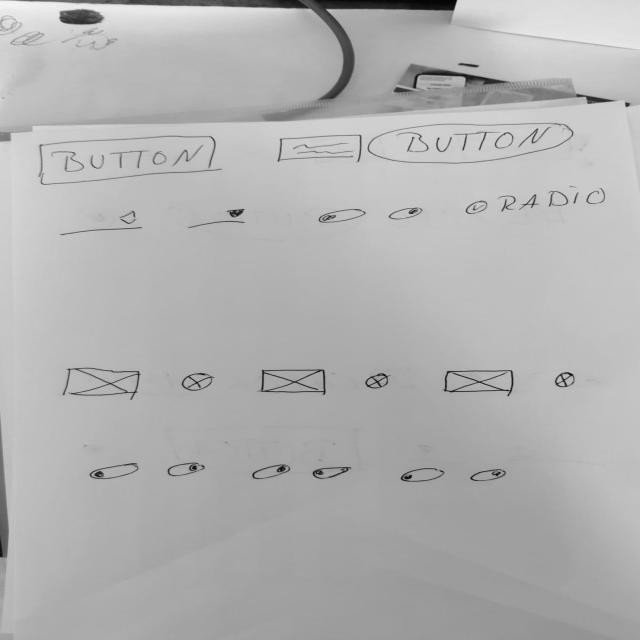 BUTTON BUTTON
RADiO